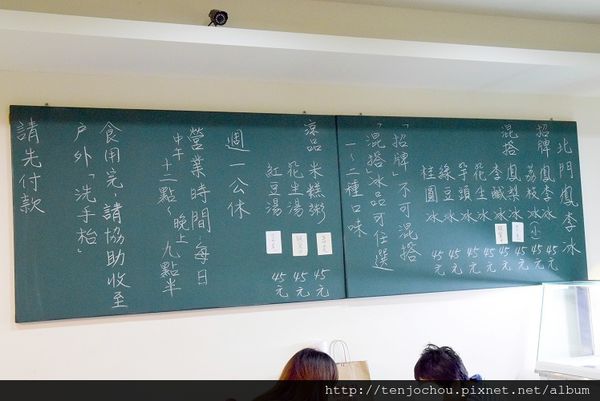 北門鳳李冰
招牌 鳳李冰 45元
荔枝冰(小) 45元
混搭 鳳梨冰 45元
李鹹冰 45元
花生冰 45元
芋頭冰 45元
綠豆冰 45元
桂圓冰 45元
「招牌」不可混搭
「混搭」冰品可任選
一～二種口味
涼品 米糕粥 45元
花生湯 45元
紅豆湯 45元
週一公休
營業時間 每日
中午十二點～晚上九點半
食用完 請協助收至
戶外「洗手枱」
請先付款
http://tenjochou.pixnet.net/album